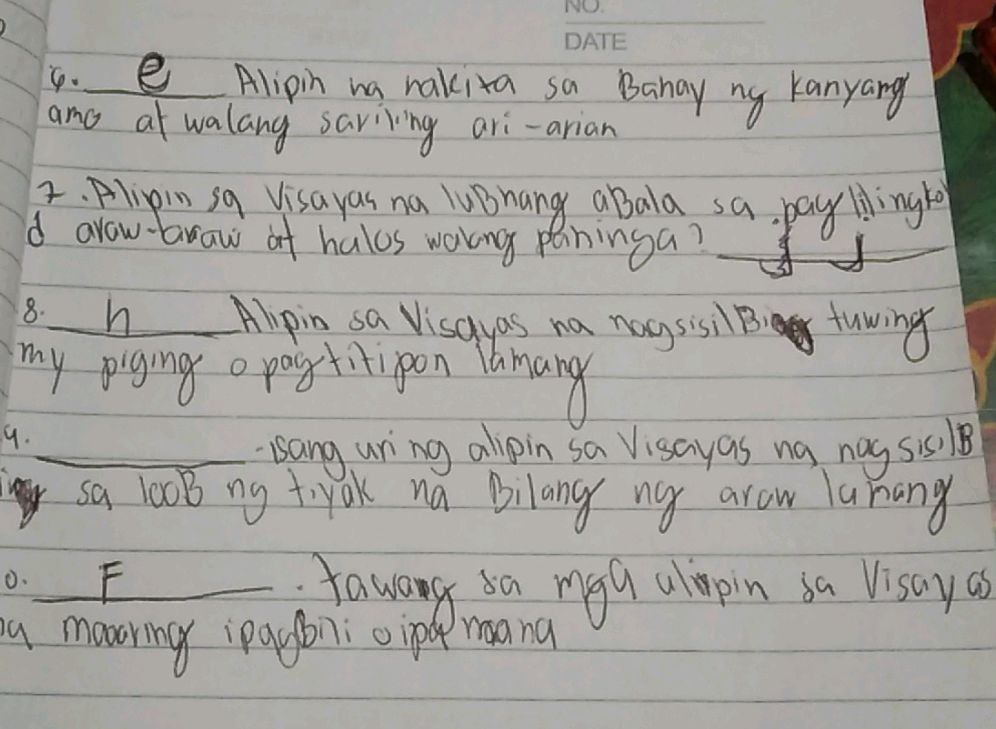 NO.
DATE
6. e Alipin na nakita sa Bahay ng kanyang
amo at walang sariling ari-arian
7. Alipin sa Visayas na luBhang aBala sa paglilingko
d araw-araw at halos walang paninga? j
8. h Alipin sa Visayas na nagsisilBi tuwing
my piging o pagtitipon lamang
9. isang uri ng alipin sa Visayas na nagsisilB
ing sa looB ng tiyak na Bilang ng araw lamang
0. F . tawang sa mga alipin sa Visayas
na maaaring ipagbili o ipamana